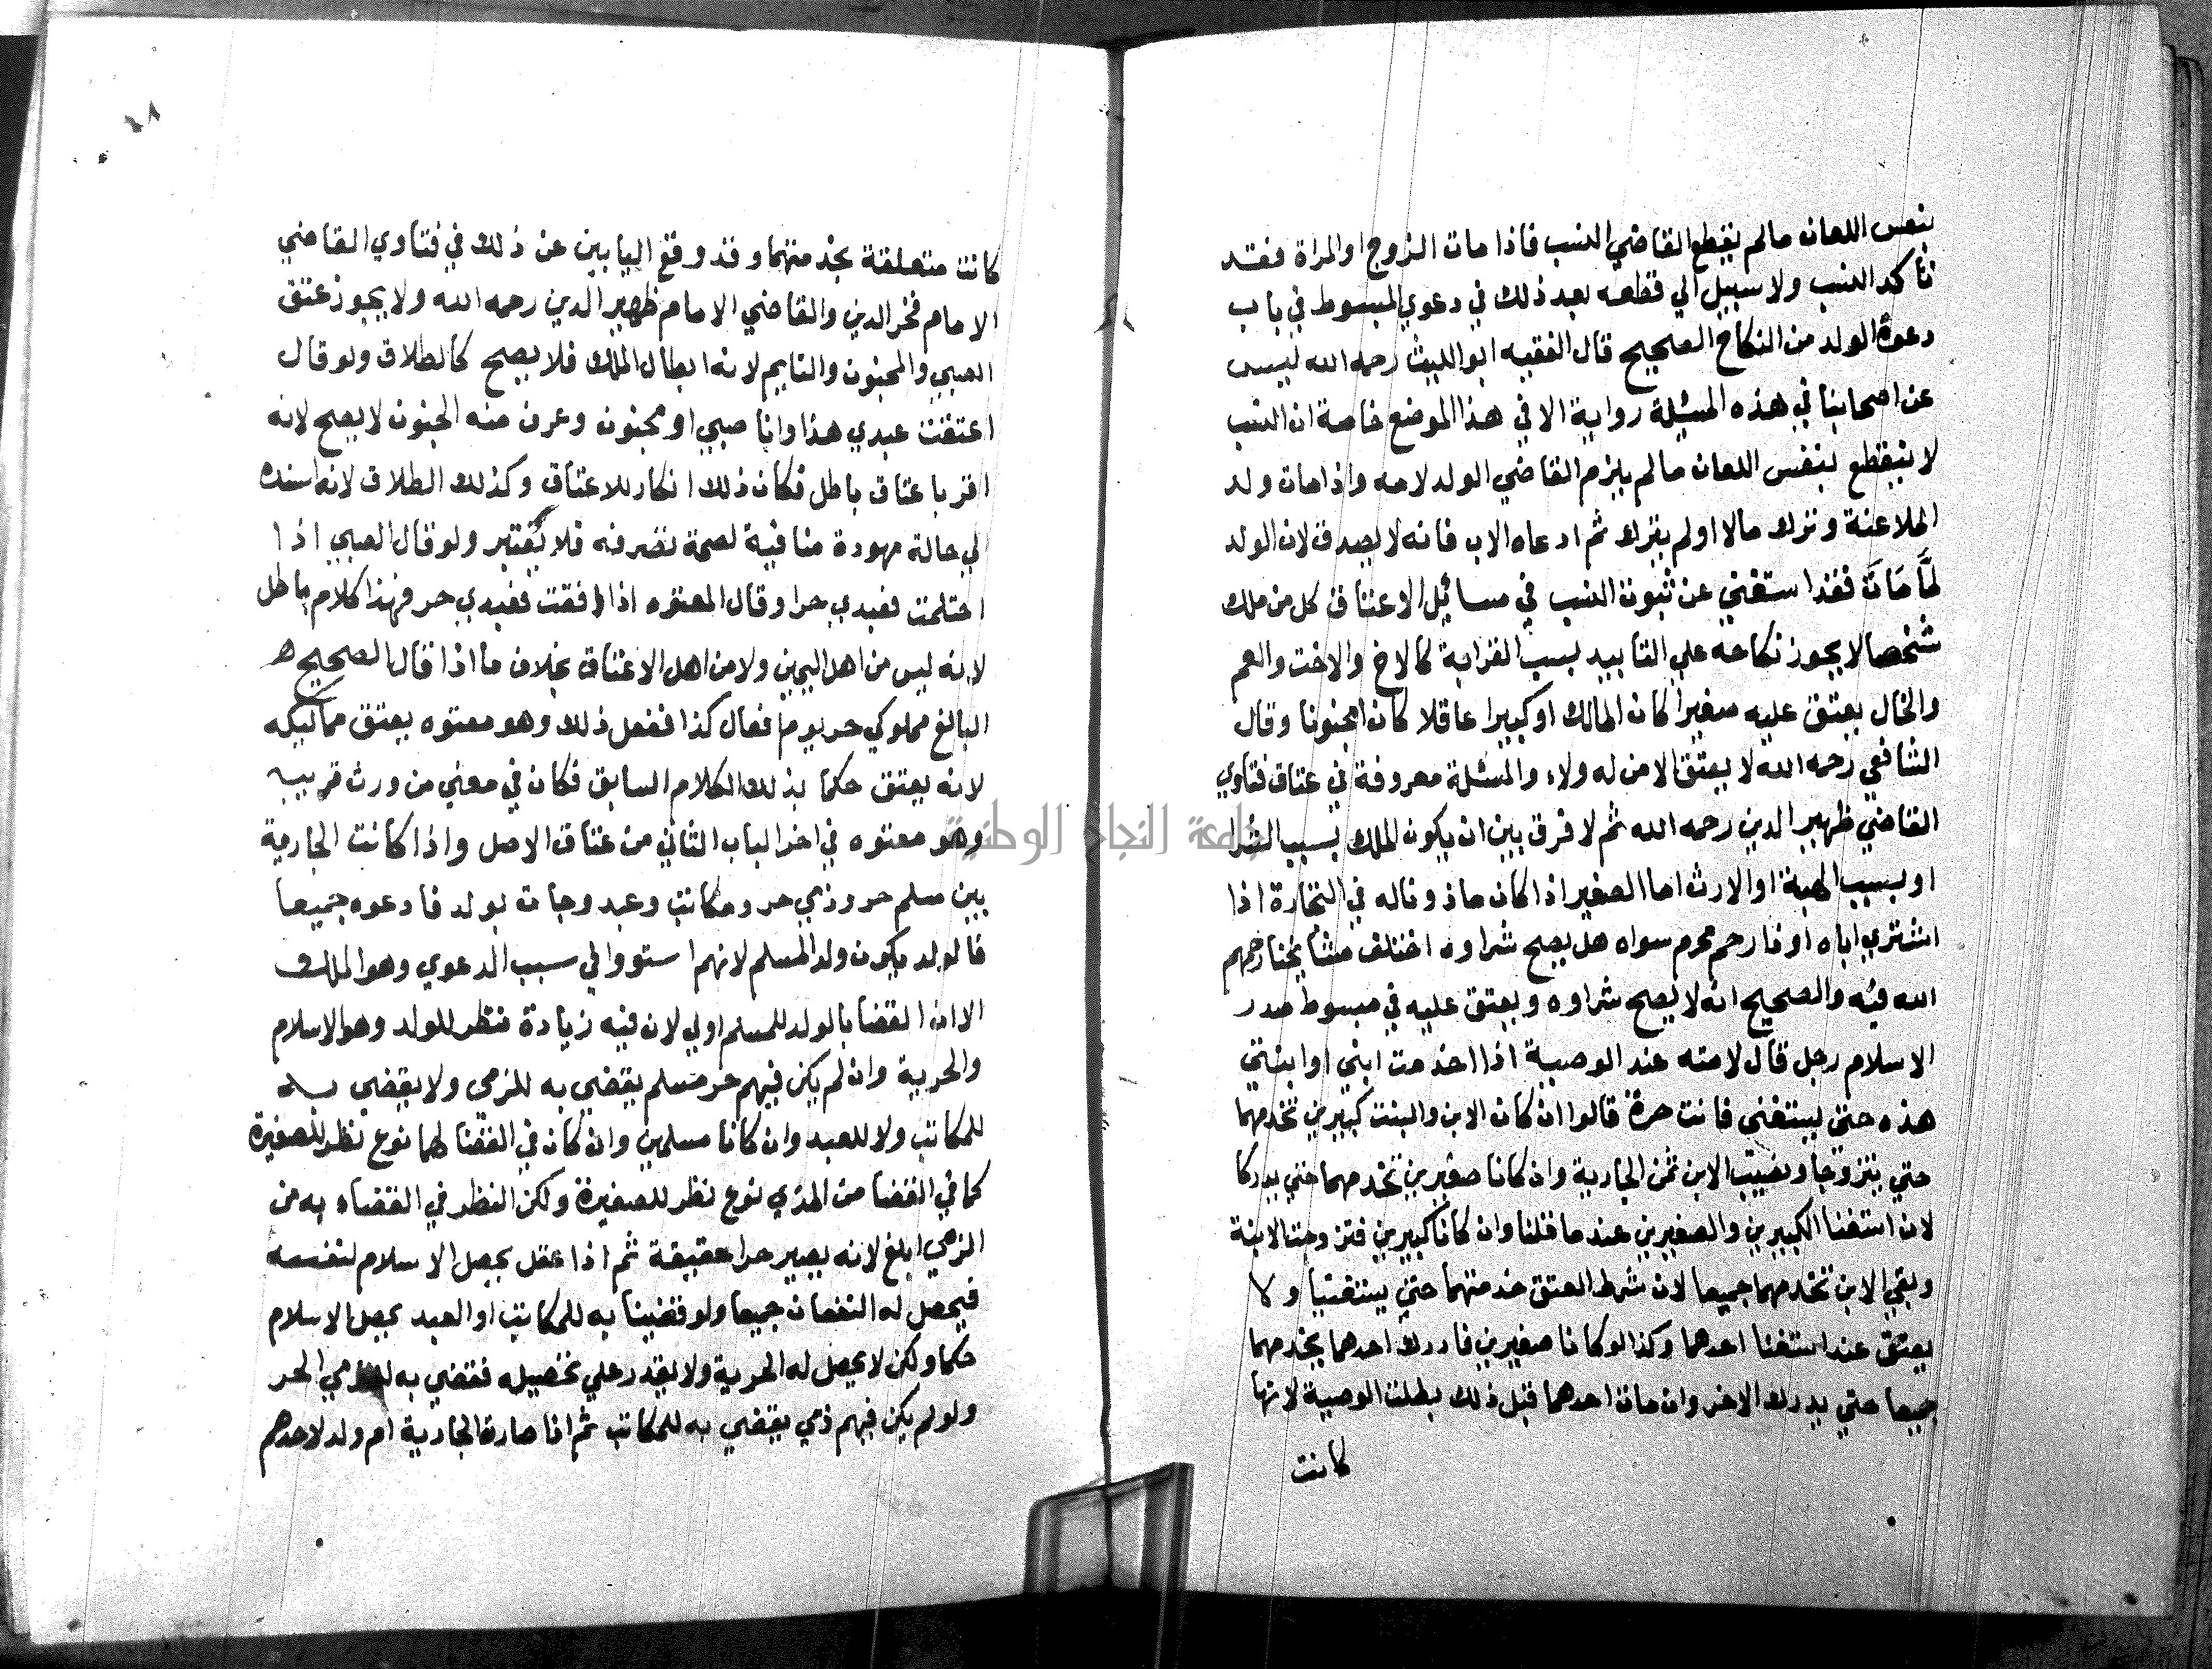 بنفس اللعان مالم يقطع القاضي النسب فاذا مات الزوج او المراة فقد
تأكد النسب ولا سبيل الي قطعه بعد ذلك في دعوي المبسوط في باب
دعوة الولد من النكاح الصحيح قال الفقيه ابو الليث رحمه الله ليس
عن اصحابنا في هذه المسئلة رواية الا في هذا الموضع خاصة ان النسب
لا ينقطع بنفس اللعان مالم يلزم القاضي الولد لامه واذا مات ولد
الملاعنة وترك مالا او لم يترك ثم ادعاه الاب فانه لا يصدق لان الولد
لمَّا مَاتَ فقد استغني عن ثبوت النسب في مسائل الاعتاق كل من ملك
شخصا لا يجوز نكاحه علي التابيد بسبب القرابة كالاخ والاخت والعم
والخال يعتق عليه صغيرا كان المالك او كبيرا عاقلا كان او مجنونا وقال
الشافعي رحمه الله لا يعتق الا من له ولاد والمسئلة معروفة في عتاق فتاوي
القاضي ظهير الدين رحمه الله ثم لا فرق بين ان يكون الملك بسبب الشرا
او بسبب الهبة او الارث اما الصغير اذا كان ماذونا له في التجارة اذا
اشتري اباه او ذا رحم محرم سواه هل يصح شراوه اختلف مشايخنا رحمهم
الله فيه والصحيح انه لا يصح شراوه ويعتق عليه في مبسوط صدر
الاسلام رجل قال لامته عند الوصية اذا اخدمت ابني او ابنتي
هذه حتي يستغني فانت حرة قالوا ان كان الابن والبنت كبيرين تخدمهما
حتي يتزوجا ويصيب الابن ثمن الجارية وان كانا صغيرين تخدمهما حتي يدركا
لان استغنا الكبيرين والصغيرين عند ما قلنا وان كانا كبيرين فتزوجت الابنة
وبقي الابن تخدمهما جميعا لان شرط العتق خدمتهما حتي يستغنيا ولا
يعتق عند استغنا احدهما وكذا لو كانا صغيرين فادرك احدهما يخدمهما
جميعا حتي يدرك الاخر وان مات احدهما قبل ذلك بطلت الوصية لانها
كانت
٦٨
كانت متعلقة بخدمتهما وقد وقع اليابين عن ذلك في فتاوي القاضي
الامام فخر الدين والقاضي الامام ظهير الدين رحمه الله ولا يجوز عتق
الصبي والمجنون والنايم لانه ابطال الملك فلا يصح كالطلاق ولو قال
اعتقت عبدي هذا وانا صبي او مجنون وعرف منه الجنون لا يصح لانه
اقر باعتاق باطل فكان ذلك انكار للاعتاق وكذلك الطلاق لانه اسنده
الي حالة معهودة منافية لصحة تصرفه فلا يعتبر ولو قال الصبي اذا
احتلمت فعبدي حر او قال المعتوه اذا افقت فعبدي حر فهذا كلام باطل
لانه ليس من اهل اليمين ولا من اهل الاعتاق بخلاف ما اذا قال الصحيح
البالغ مملوكي حر يوم افعل كذا ففعل ذلك وهو معتوه يعتق مماليكه
لانه يعتق حكما بذلك الكلام السابق فكان في معني من ورث قريبه
وهو معتوه في اخر الباب الثاني من عتاق الاصل واذا كانت الجارية
بين مسلم حر وذمي حر ومكاتب وعبد وجات بولد فادعوه جميعا
فالولد يكون ولد المسلم لانهم استووا في سبب الدعوي وهو الملك
الا ان القضا بالولد للمسلم اولي لان فيه زيادة نظر للولد وهو الاسلام
والحرية وان لم يكن فيهم حر مسلم يقضي به للذمي ولا يقضي به
للمكاتب ولا للعبد وان كانا مسلمين وان كان في القضا لهما نوع نظر للصغيرة
كما في القضا من الذمي نوع نظر للصغيرة ولكن النظر في القضاء به من
الذمي ابلغ لانه يصير حرا حقيقة ثم اذا عقل يحصل الاسلام لنفسه
فيحصل له النفعان جميعا ولو قضينا به للمكاتب او العبد يحصل الاسلام
حكما ولكن لا يحصل له الحرية ولا يقدر علي تحصيله فقضي به للذمي الحر
ولو لم يكن فيهم ذمي يقضي به للمكاتب ثم اذا صارة الجارية ام ولد لاحدهم
جامعة النجاح الوطنية